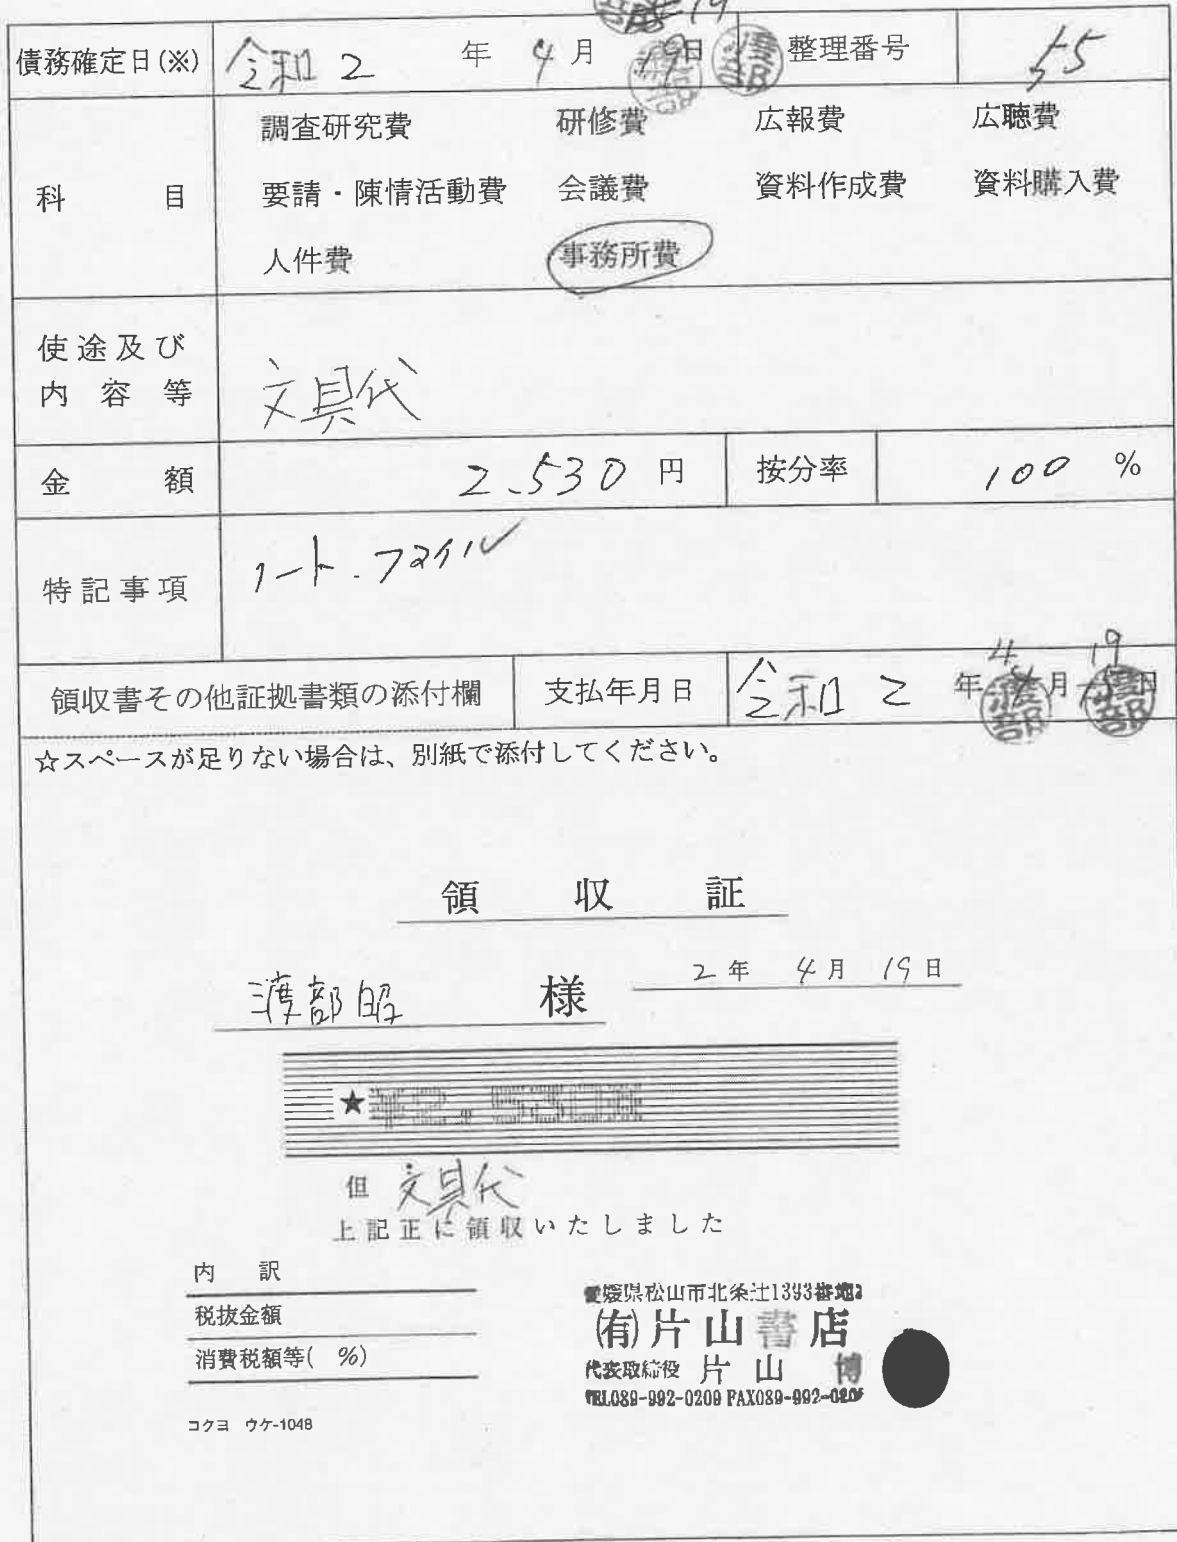 19
債務確定日(※) 令和2 年 4月 19日 整理番号
調査研究費 研修費 広報費 広聴費
科 目 要請・陳情活動費 会議費 資料作成費 資料購入費
人件費 事務所費
使途及び
内容等 文具代
金 額 2.530 円 按分率 100 %
特記事項 ノート.ファイル
4 19
領収書その他証拠書類の添付欄 支払年月日 令和2 年 月 日
☆スペースが足りない場合は、別紙で添付してください。
領 収 証
渡部昭 様 2年 4月 19日
★¥2,530※
但 文具代
上記正に領収いたしました
内 訳
税抜金額
消費税額等( %)
コクヨ ウケ-1048
愛媛県松山市北条辻1393番地2
(有)片山書店
代表取締役 片山 博
TEL089-992-0209 FAX089-992-